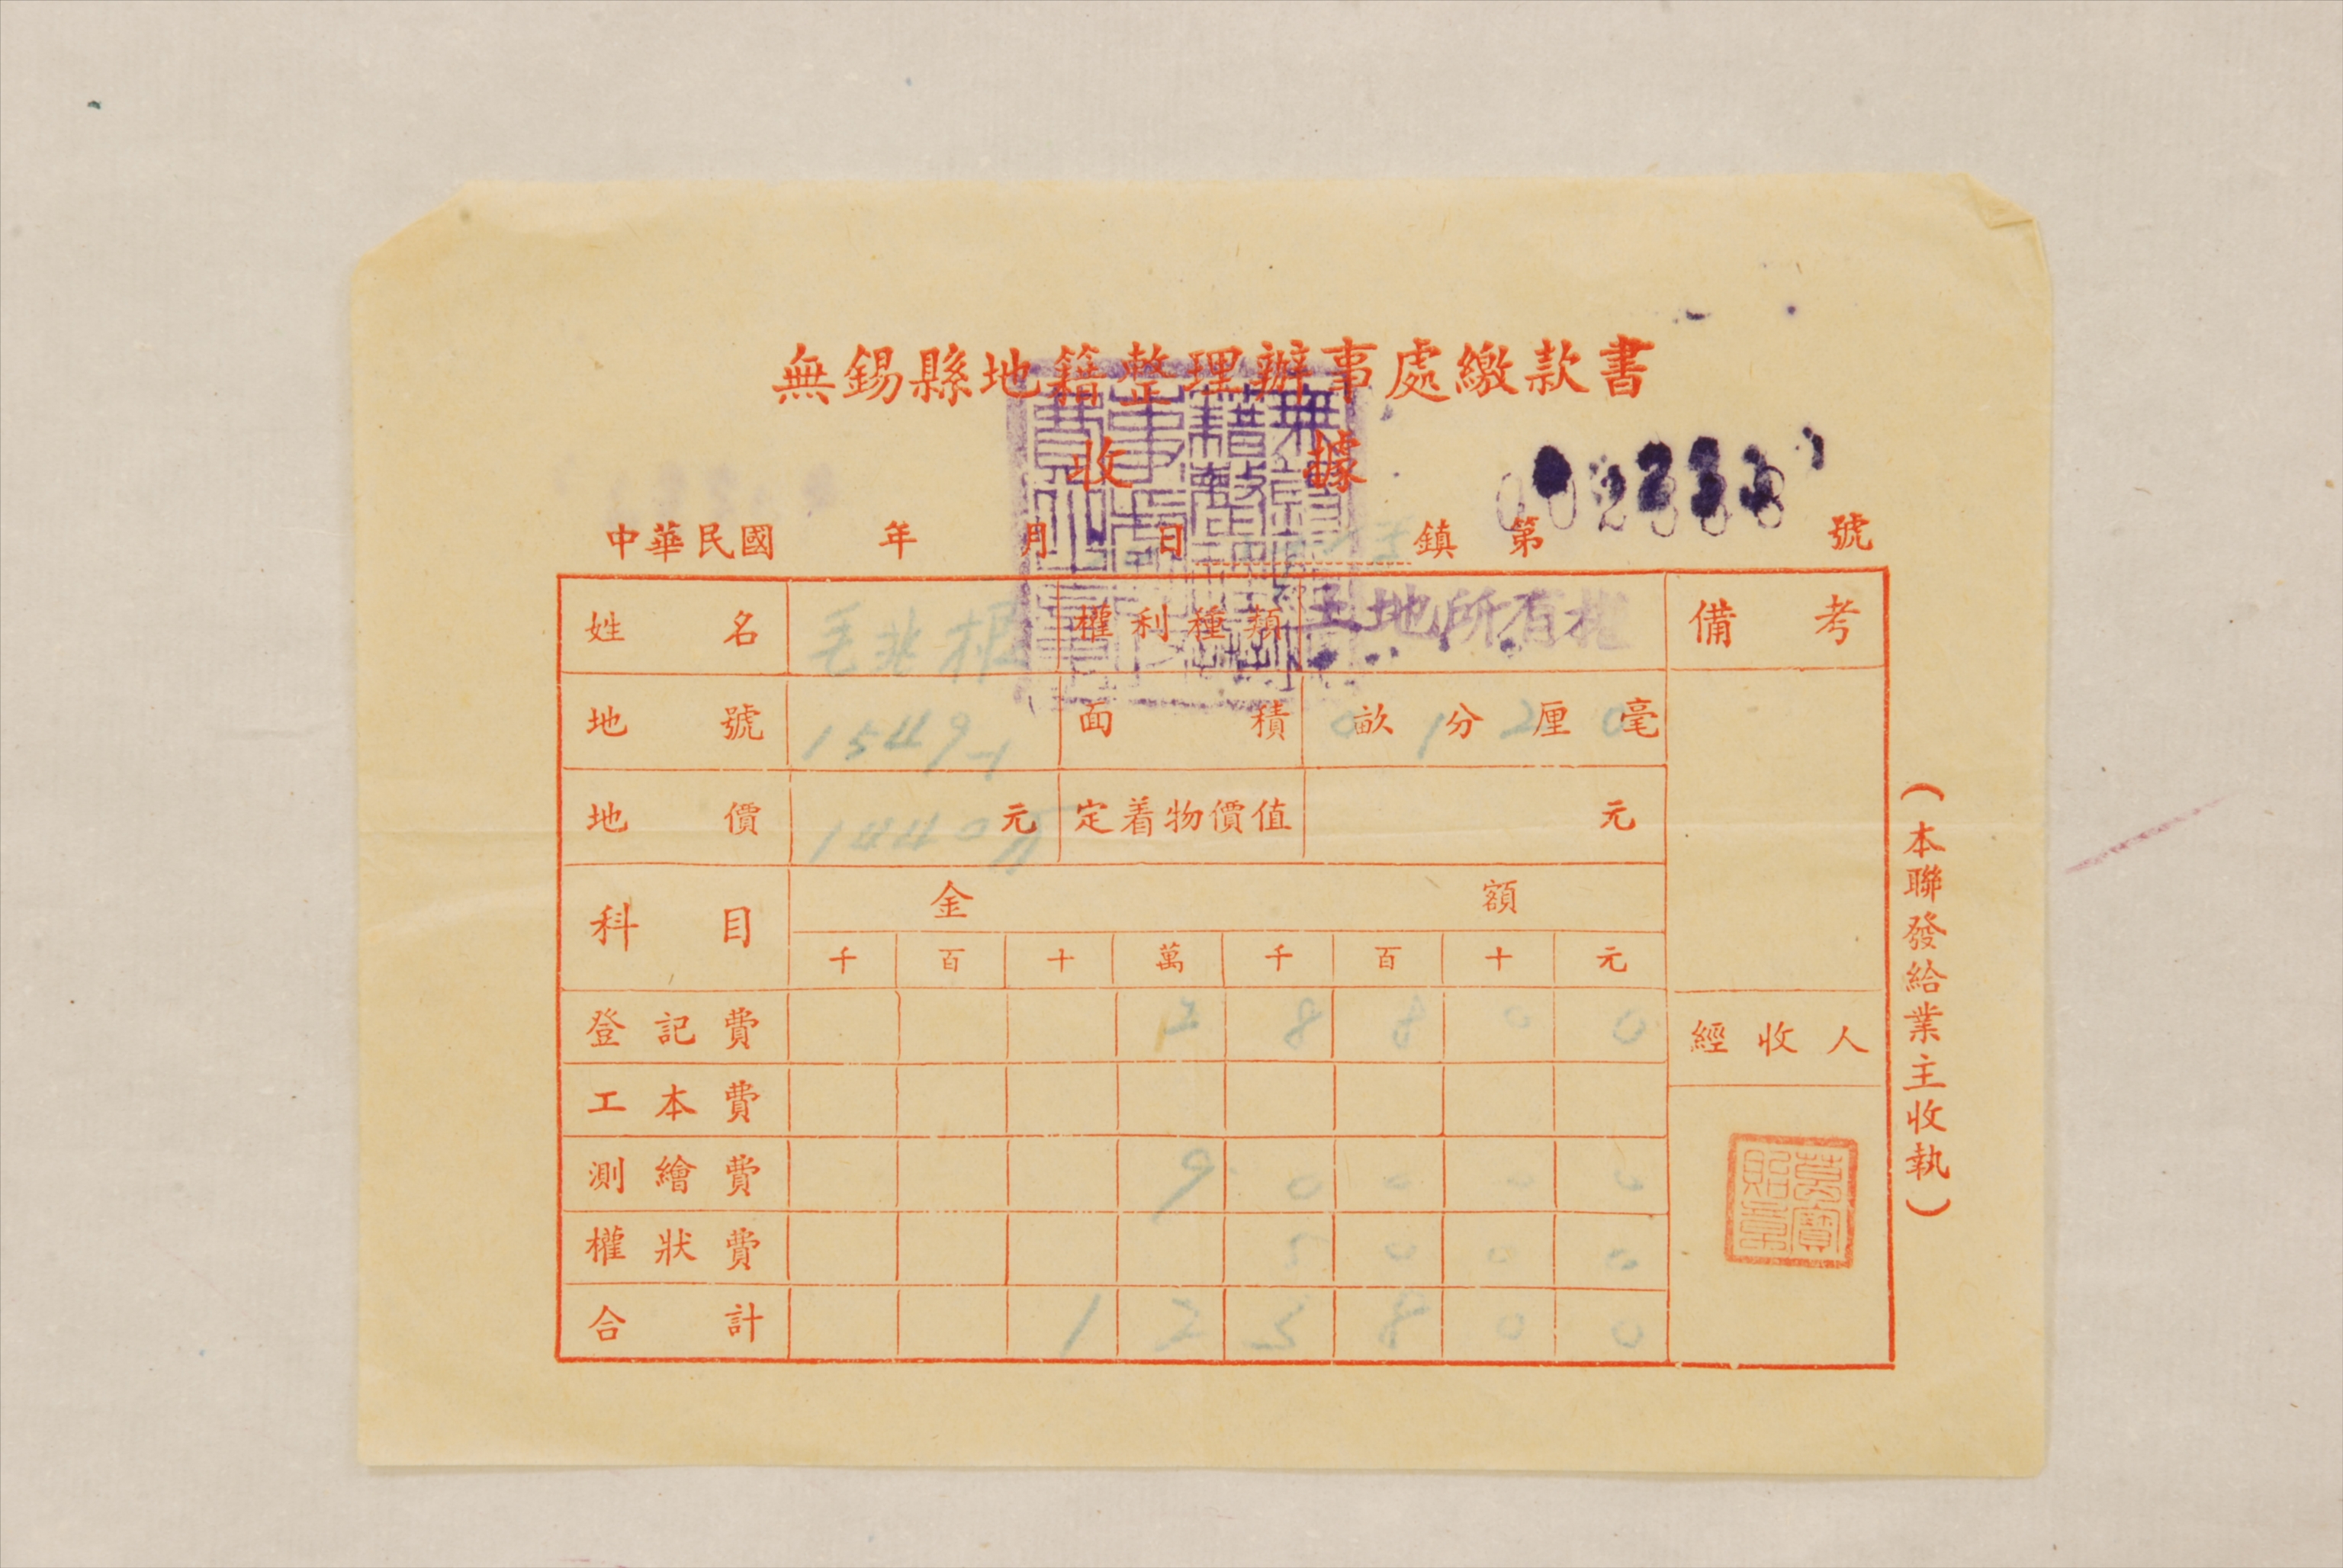 無錫縣地籍整理辦事處繳款書
收據
中華民國 年 月 日 鎮 第 號
姓名 毛兆根 權利種類 土地所有權 備考
地號 1549-1 面積 0畝1分2厘0毫
地價 1440万元 定着物價值 元
科目 金額
千 百 十 萬 千 百 十 元
登記費 2 8 8 0 0 經收人
工本費
測繪費 9 0 0 0 0
權狀費 5 0 0 0
合計 1 2 3 8 0 0
(本聯發給業主收執)